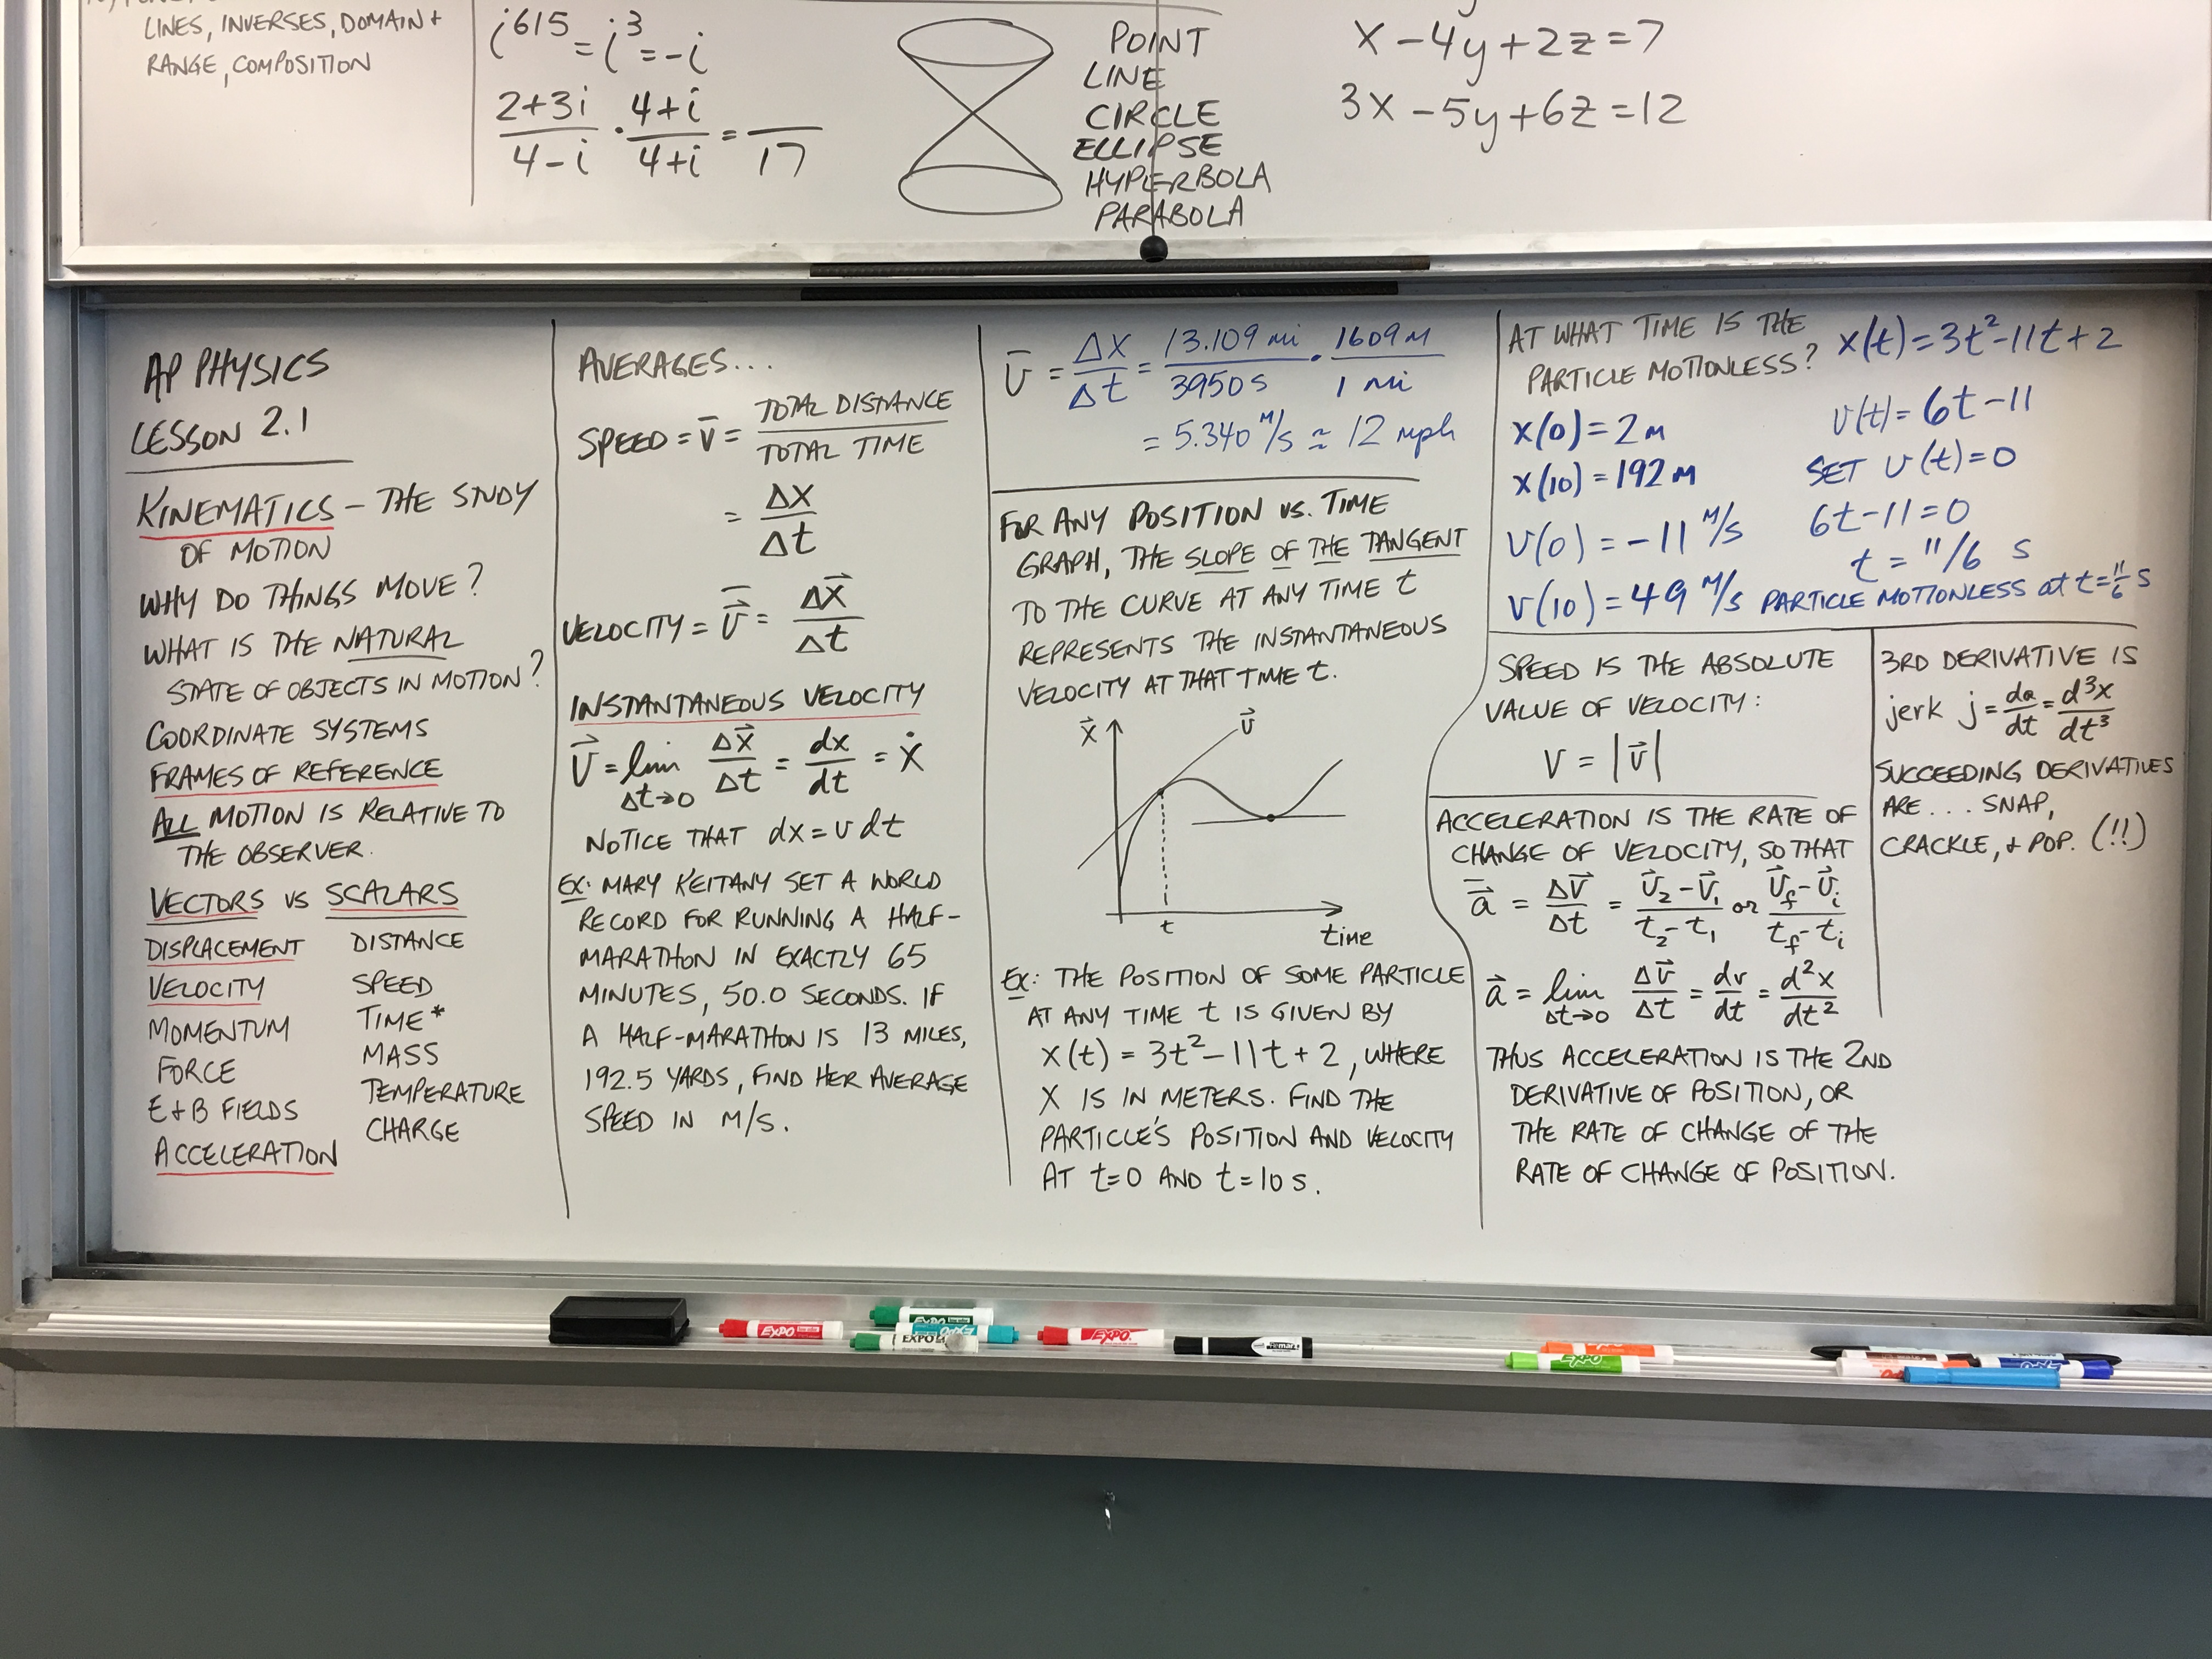 LINES, INVERSES, DOMAIN +
RANGE, COMPOSITION
i^615 = i^3 = -i
(2+3i)/(4-i) · (4+i)/(4+i) = __/17
POINT
LINE
CIRCLE
ELLIPSE
HYPERBOLA
PARABOLA
x-4y+2z=7
3x-5y+6z=12
AP PHYSICS
LESSON 2.1
KINEMATICS - THE STUDY
OF MOTION
WHY DO THINGS MOVE?
WHAT IS THE NATURAL
STATE OF OBJECTS IN MOTION?
COORDINATE SYSTEMS
FRAMES OF REFERENCE
ALL MOTION IS RELATIVE TO
THE OBSERVER.
VECTORS VS SCALARS
DISPLACEMENT DISTANCE
VELOCITY SPEED
MOMENTUM TIME*
FORCE MASS
E+B FIELDS TEMPERATURE
ACCELERATION CHARGE
AVERAGES...
SPEED = v̄ = TOTAL DISTANCE / TOTAL TIME
= Δx/Δt
VELOCITY = v⃗̄ = Δx⃗/Δt
INSTANTANEOUS VELOCITY
v⃗ = lim Δt→0 Δx⃗/Δt = dx/dt = ẋ
NOTICE THAT dx = v dt
EX: MARY KEITANY SET A WORLD
RECORD FOR RUNNING A HALF-
MARATHON IN EXACTLY 65
MINUTES, 50.0 SECONDS. IF
A HALF-MARATHON IS 13 MILES,
192.5 YARDS, FIND HER AVERAGE
SPEED IN M/S.
v̄ = Δx/Δt = 13.109 mi/3950 s · 1609 M/1 mi
= 5.340 M/s ≈ 12 mph
FOR ANY POSITION VS. TIME
GRAPH, THE SLOPE OF THE TANGENT
TO THE CURVE AT ANY TIME t
REPRESENTS THE INSTANTANEOUS
VELOCITY AT THAT TIME t.
x⃗
v⃗
t
time
EX: THE POSITION OF SOME PARTICLE
AT ANY TIME t IS GIVEN BY
x(t) = 3t²-11t+2, WHERE
X IS IN METERS. FIND THE
PARTICLE'S POSITION AND VELOCITY
AT t=0 AND t=10 s.
AT WHAT TIME IS THE
PARTICLE MOTIONLESS?
x(0) = 2 M
x(10) = 192 M
v(0) = -11 M/s
v(10) = 49 M/s
x(t) = 3t²-11t+2
v(t) = 6t-11
SET v(t)=0
6t-11=0
t = 11/6 s
PARTICLE MOTIONLESS at t=11/6 s
SPEED IS THE ABSOLUTE
VALUE OF VELOCITY:
v = |v⃗|
ACCELERATION IS THE RATE OF
CHANGE OF VELOCITY, SO THAT
a⃗̄ = Δv⃗/Δt = (v⃗2-v⃗1)/(t2-t1) or (v⃗f-v⃗i)/(tf-ti)
a⃗ = lim Δt→0 Δv⃗/Δt = dv/dt = d²x/dt²
THUS ACCELERATION IS THE 2ND
DERIVATIVE OF POSITION, OR
THE RATE OF CHANGE OF THE
RATE OF CHANGE OF POSITION.
3RD DERIVATIVE IS
jerk j = da/dt = d³x/dt³
SUCCEEDING DERIVATIVES
ARE... SNAP,
CRACKLE, + POP. (!!)
EXPO
EXPO
EXPO
EXPO